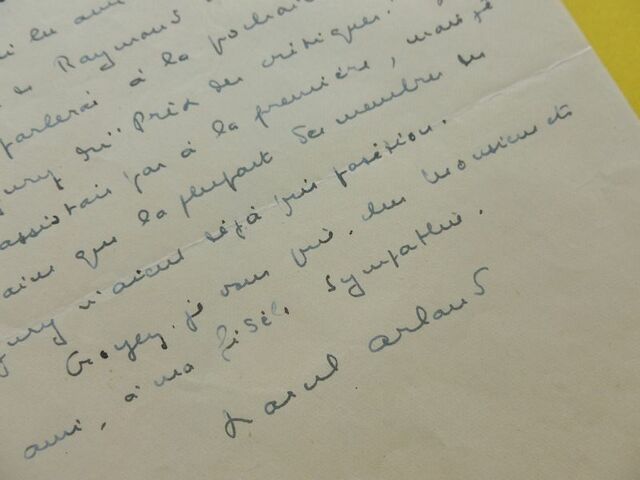 lu
Raymond
parlerai à la prochaine
jury du "Prix des critiques"
assistais pas à la première, mais je
que la plupart des membres du
jury n'aient déjà pris position.
Croyez, je vous prie, cher Monsieur et
ami, à ma fidèle sympathie.
Marcel Arland